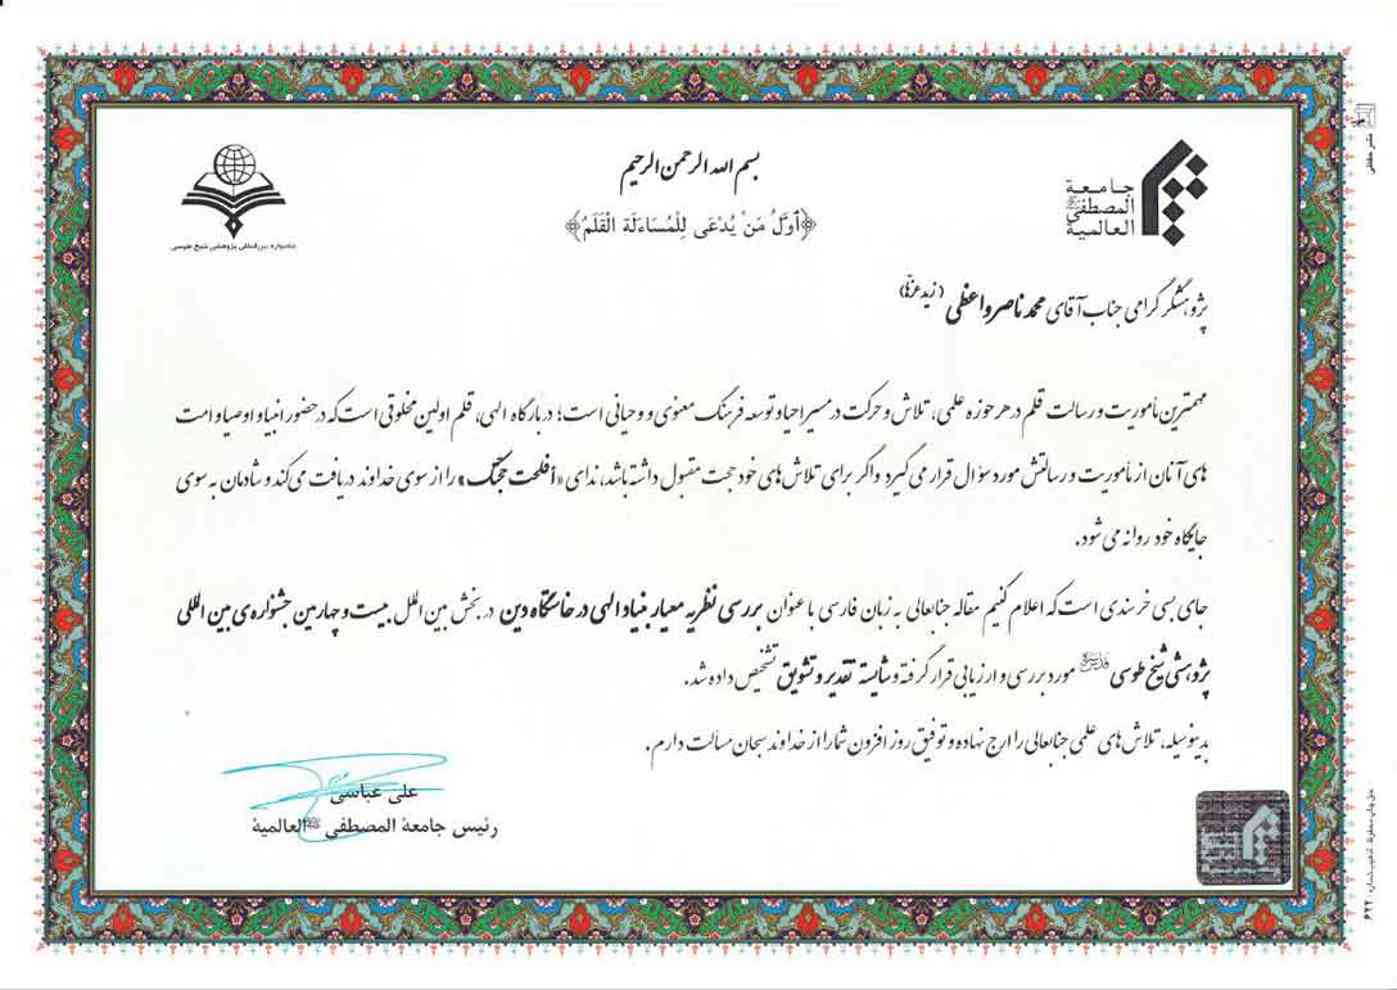 بسم الله الرحمن الرحیم
﴿أوَلُ مَنْ يُدْعَى لِلْمُسَاءَلَة الْقَلَمُ﴾
جامعة
المصطفی
العالمية
جشنواره بین‌المللی پژوهشی شیخ طوسی
پژوهشگر گرامی جناب آقای محمد ناصر واعظی (زید عزه)
مهمترین مأموریت و رسالت قلم در هر حوزه علمی، تلاش و حرکت در مسیر احیا و توسعه فرهنگ معنوی و وحیانی است؛ در بارگاه الهی، قلم اولین مخلوقی است که در حضور انبیا و اوصیا و امت
های آنان از مأموریت و رسالتش مورد سؤال قرار می گیرد و اگر برای تلاش های خود حجت مقبول داشته باشد، ندای «أفلحت حجتک» را از سوی خداوند دریافت می کند و شادمان به سوی
جایگاه خود روانه می شود.
جای بسی خرسندی است که اعلام کنیم مقاله جنابعالی به زبان فارسی با عنوان بررسی نظریه معیار بنیاد الهی در خاستگاه دین در بخش بین الملل بیست و چهارمین جشنواره‌ی بین المللی
پژوهشی شیخ طوسی قدس سره مورد بررسی و ارزیابی قرار گرفته و شایسته تقدیر و تشویق تشخیص داده شد.
بدینوسیله، تلاش های علمی جنابعالی را ارج نهاده و توفیق روز افزون شما را از خداوند سبحان مسألت دارم.
علی عباسی
رئیس جامعة المصطفی ﷺ العالمیة